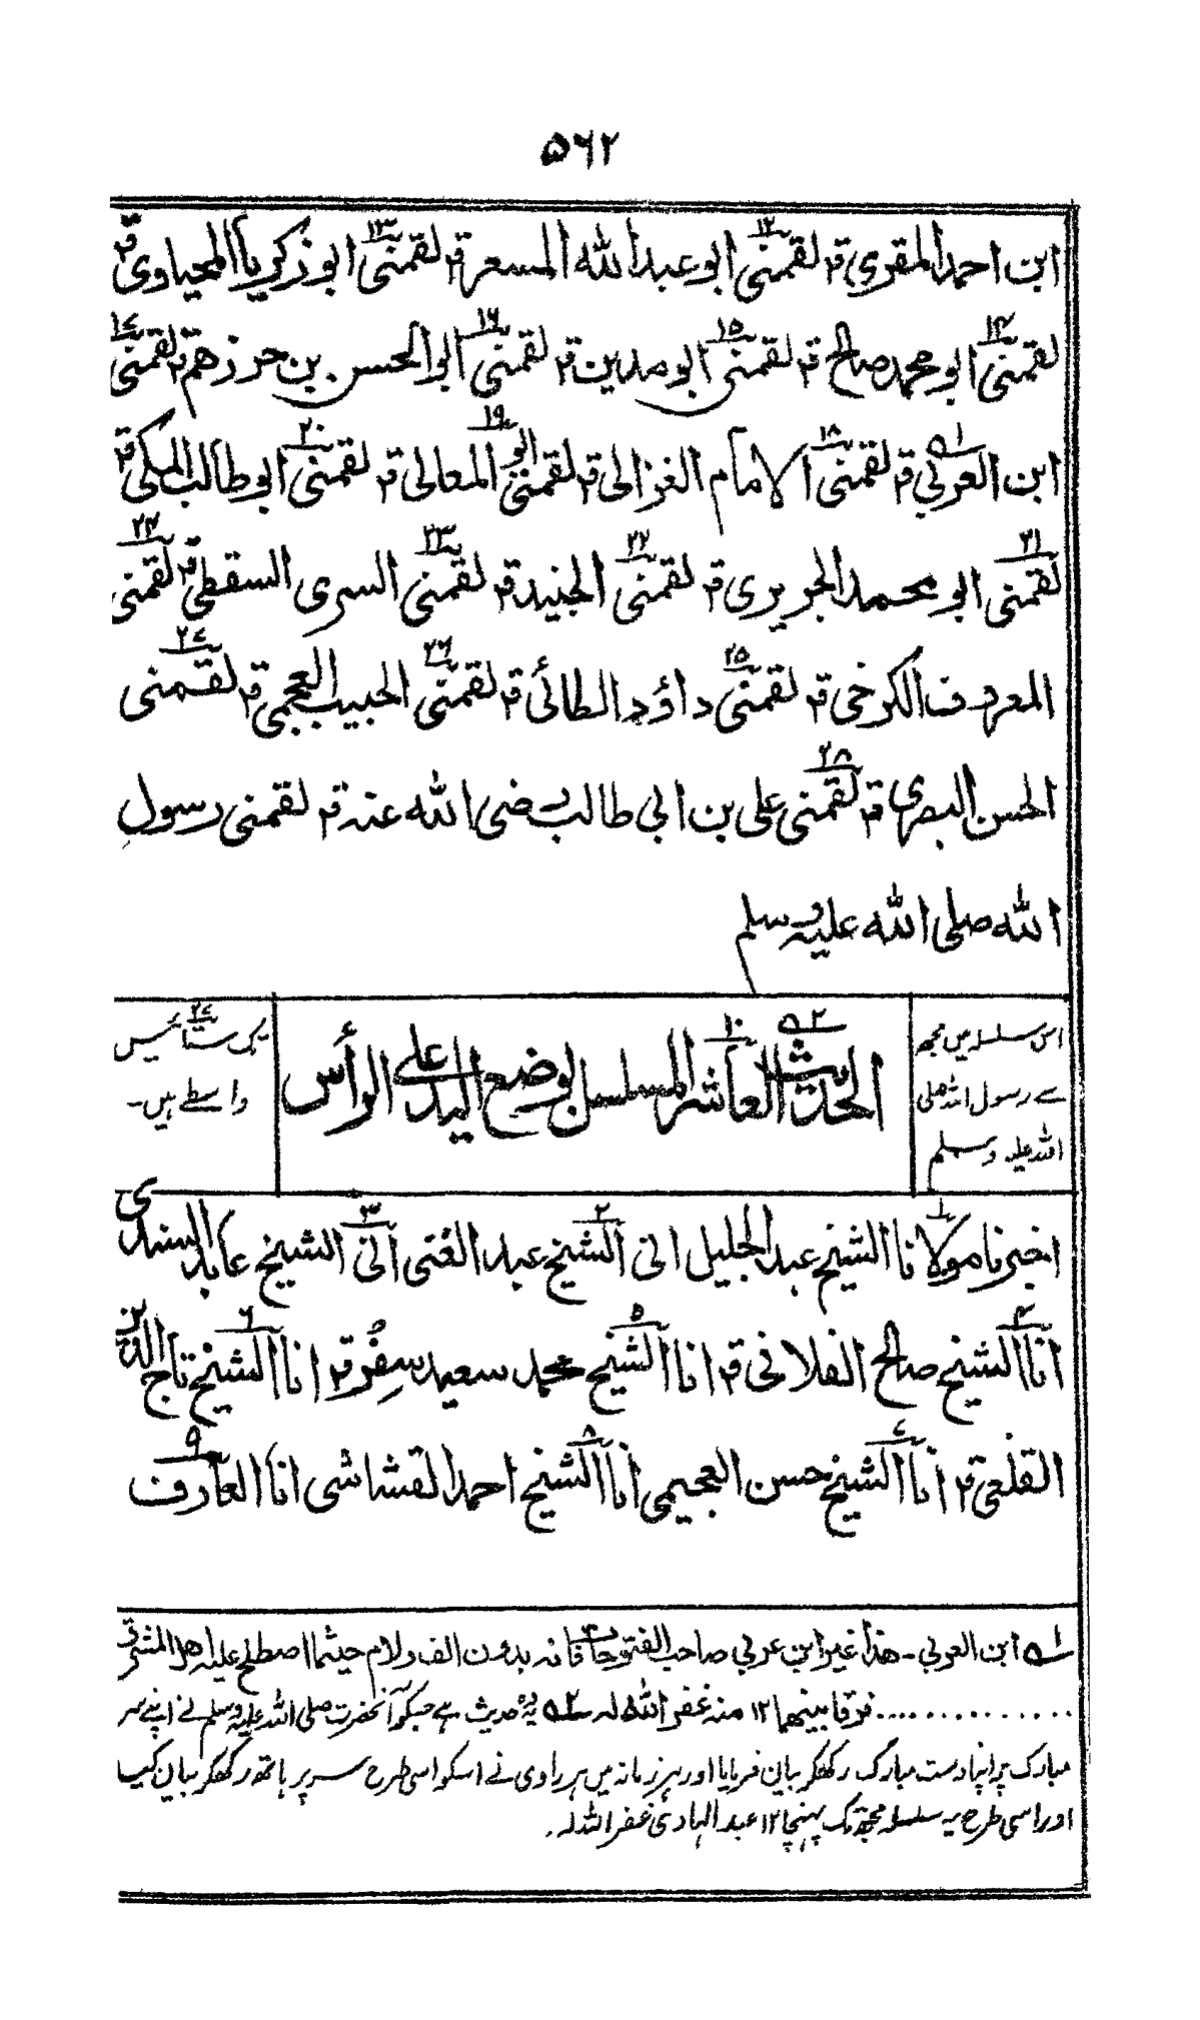 ۵۶۲
ابن احمد المقری قہ لقمنی۱۲ ابو عبد اللہ المسعر قہ لقمنی۱۳ ابو زکریا المحیاوی قہ
لقمنی۱۴ ابو محمد صالح قہ لقمنی۱۵ ابو مدین قہ لقمنی۱۶ ابو الحسن بن حرزھم قہ لقمنی۱۷
ابن العربی لہ۱ قہ لقمنی۱۸ الامام الغزالی قہ لقمنی۱۹ ابو المعالی قہ لقمنی۲۰ ابو طالب المکی قہ
لقمنی۲۱ ابو محمد الجریری قہ لقمنی۲۲ الجنید قہ لقمنی۲۳ السری السقطی قہ لقمنی۲۴
المعروف الکرخی قہ لقمنی۲۵ داؤد الطائی قہ لقمنی۲۶ الحبیب العجمی قہ لقمنی۲۷
الحسن البصری قہ لقمنی۲۸ علی بن ابی طالب رضی اللہ عنہ قہ لقمنی رسول
اللہ صلی اللہ علیہ وسلم
اس سلسلہ میں مجھ
سے رسول اللہ صلی
اللہ علیہ وسلم
الحدیث۵۲ العاشر۱۰ المسلسل بوضع الید علی الرأس
تک ستائیس۲۷
واسطے ہیں۔
اخبرنا مولانا۱ الشیخ عبد الجلیل انی الشیخ۲ عبد الغنی انی۳ الشیخ عابد السندی
انا الشیخ۴ صالح الفلانی قہ انا الشیخ۵ محمد سعید سفر قہ انا الشیخ۶ تاج الدین
القلعی قہ انا الشیخ۷ حسن العجیمی انا الشیخ۸ احمد القشاشی انا العارف۹
لہ۱ ابن العربی۔ ھذا غیر ابن عربی صاحب الفتوحات فانہ بدون الف ولام حیثما اصطلح علیہ اھل المشرق
............. فرقا بینھما ۱۲ منہ غفر اللہ لہ ۵۲ یہ وہ حدیث ہے جسکو آنحضرت صلی اللہ علیہ وسلم نے اپنے سر
مبارک پر اپنا دست مبارک رکھکر بیان فرمایا اور ہر زمانہ میں ہر راوی نے اسکو اسی طرح سر پر ہاتھ رکھکر بیان کیا
اور اسی طرح یہ سلسلہ مجھ تک پہنچا ۱۲ عبد الہادی غفر اللہ لہ۔